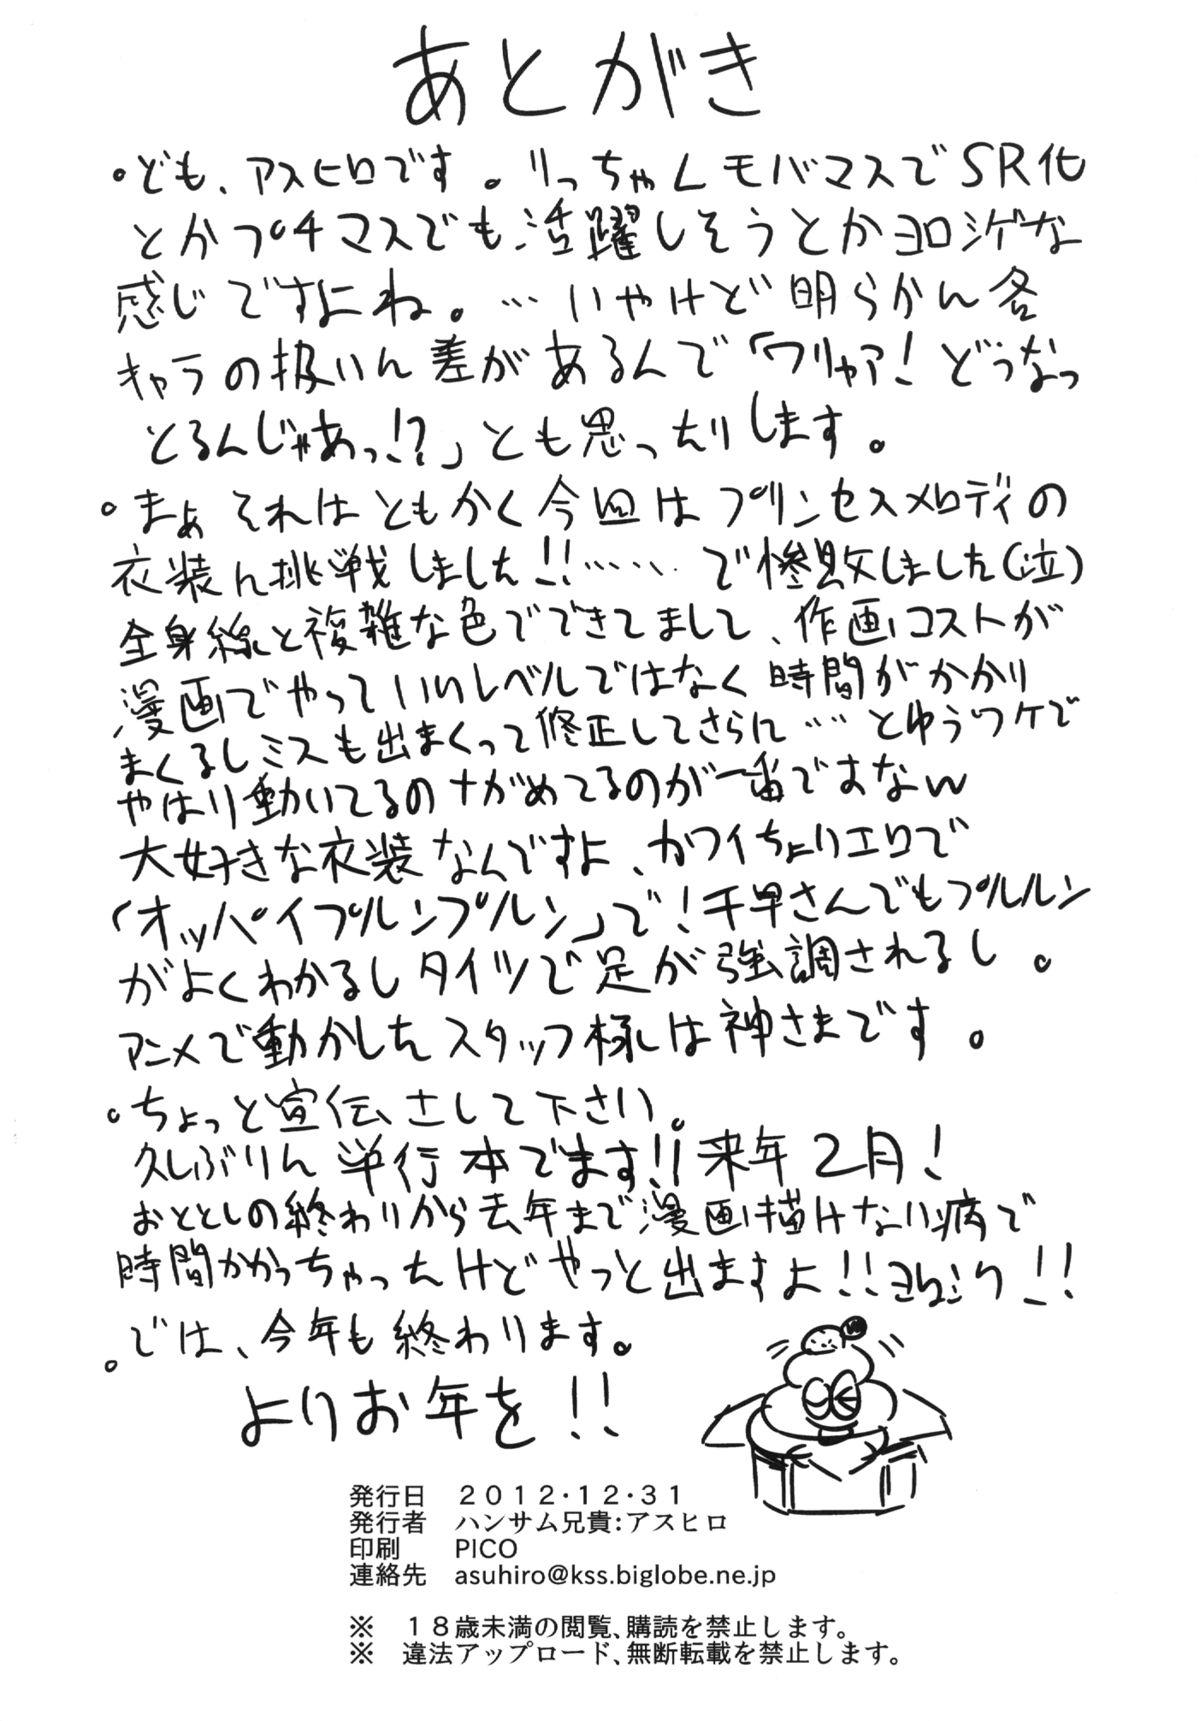 あとがき
。ども、アスヒロです。りっちゃんモバマスでSR化
とかプチマスでも活躍しそうとかヨロシゲな
感じですよね。…いやけど明らかに各
キャラの扱いに差があるんで「ワリャア！どうなっ
とるんじゃあっ!?」とも思ったりします。
。まぁそれはともかく今回はプリンセスメロディの
衣装に挑戦しました!!……で惨敗しました(泣)
全身線と複雑な色でできてまして、作画コストが
漫画でやっていいレベルではなく時間がかかり
まくるしミスも出まくって修正してさらに……とゆうワケで
やはり動いてるのナがめてるのが一番ですなw
大好きな衣装なんですよ、カワイちょりエロで
「オッパイプルンプルン」で！千早さんでもプルルン
がよくわかるしタイツで足が強調されるし。
アニメで動かしたスタッフ様は神さまです。
。ちょっと宣伝さして下さい。
久しぶりに単行本でます!!来年2月！
おととしの終わりから去年まで漫画描けない病で
時間かかっちゃったけどやっと出ますよ!!ヨロシク!!
。では、今年も終わります。
よりお年を!!
発行日　２０１２・１２・３１
発行者　ハンサム兄貴：アスヒロ
印刷　PICO
連絡先　asuhiro@kss.biglobe.ne.jp
※　１８歳未満の閲覧、購読を禁止します。
※　違法アップロード、無断転載を禁止します。